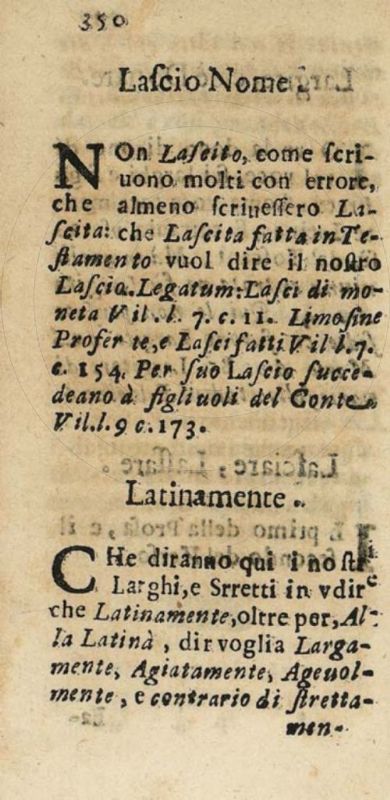 350
Laſcio Nome
NOn Laſcito, come ſcri-
uono molti con errore,
che almeno ſcriueſſero La-
ſcita: che Laſcita fatta in Te-
ſtamento vuol dire il noſtro
Laſcio. Legatum: Laſci di mo-
neta Vil. l. 7. c. 11. Limoſine
Profer te, e Laſci fatti Vil l. 7.
c. 154. Per ſuo Laſcio ſucce-
deano à figliuoli del Conte
Vil. l. 9 c. 173.
Latinamente.
CHe diranno qui i noſtri
Larghi, e Srretti in vdire
che Latinamente, oltre per, Al-
la Latinà, dir voglia Larga-
mente, Agiatamente, Ageuol-
mente, e contrario di ſtretta-
men-